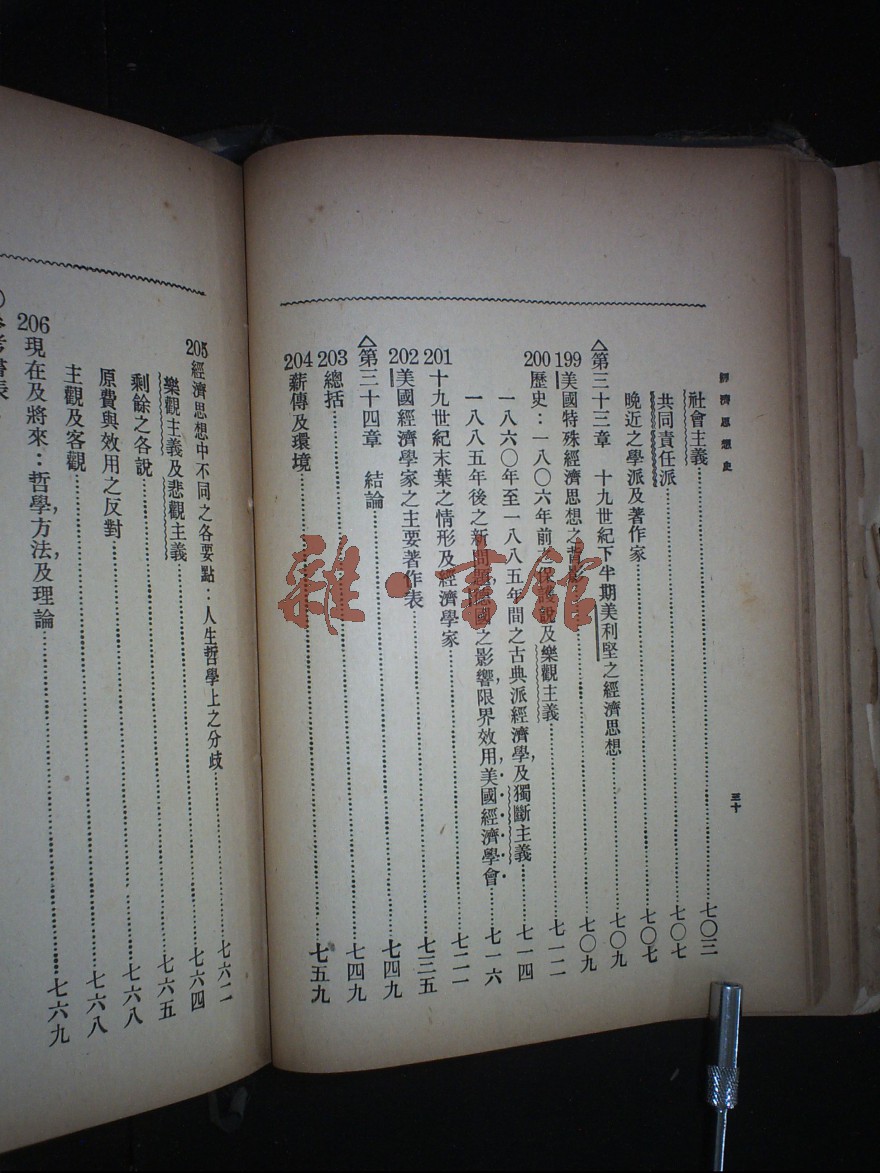 經濟思想史
三十
社會主義……七〇三
共同責任派……七〇七
晚近之學派及著作家……七〇七
△第三十三章　十九世紀下半期美利堅之經濟思想……七〇九
199美國特殊經濟思想之背景……七〇九
200歷史：一八〇六年前之保護說及樂觀主義……七一二
一八六〇年至一八八五年間之古典派經濟學，及獨斷主義……七一四
一八八五年後之新問題，德國之影響，限界效用，美國經濟學會……七一六
201十九世紀末葉之情形及經濟學家……七二一
202美國經濟學家之主要著作表……七三五
△第三十四章　結論……七四九
203總括……七四九
204薪傳及環境……七五九
205經濟思想中不同之各要點：人生哲學上之分歧……七六二
樂觀主義及悲觀主義……七六四
剩餘之各說……七六五
原費與效用之反對……七六八
主觀及客觀……七六八
206現在及將來：哲學，方法，及理論……七六九
雜·書館